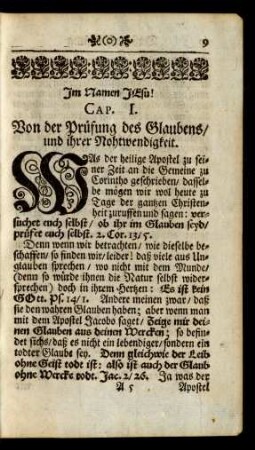 9
Im Namen JEsu!
CAP. I.
Von der Prüfung des Glaubens/
und ihrer Nohtwendigkeit.
WAs der heilige Apostel zu sei-
ner Zeit an die Gemeine zu
Corintho geschrieben/ dassel-
be mögen wir wol heute zu
Tage der gantzen Christen-
heit zuruffen und sagen: ver-
suchet euch selbst/ ob ihr im Glauben seyd/
prüfet euch selbst. 2. Cor. 13/5.
Denn wenn wir betrachten/ wie dieselbe be-
schaffen/ so finden wir/ leider! daß viele aus Un-
glauben sprechen/ wo nicht mit dem Munde
(denn so würde ihnen die Natur selbst wider-
sprechen) doch in ihrem Hertzen: Es ist kein
GOtt. Ps. 14/1. Andere meinen zwar/ daß
sie den wahren Glauben haben; aber wenn man
mit dem Apostel Jacobo saget/ Zeige mir dei-
nen Glauben aus deinen Wercken; so befin-
det sichs/ daß es nicht ein lebendiger/ sondern ein
todter Glaube sey. Denn gleichwie der Leib
ohne Geist todt ist: also ist auch der Glaub
ohne Wercke todt. Jac. 2/26. Ja was der
A 5 Apostel